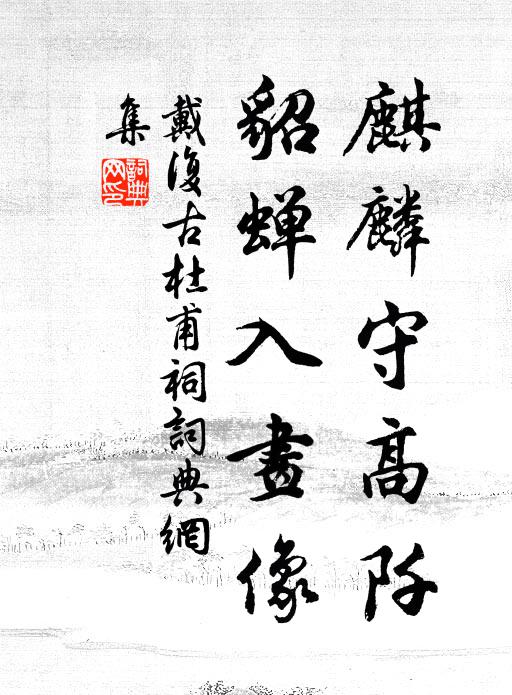 麒麟守高阡
貂蟬入畫像
戴復古杜甫祠詞典網
集
詞典
网印